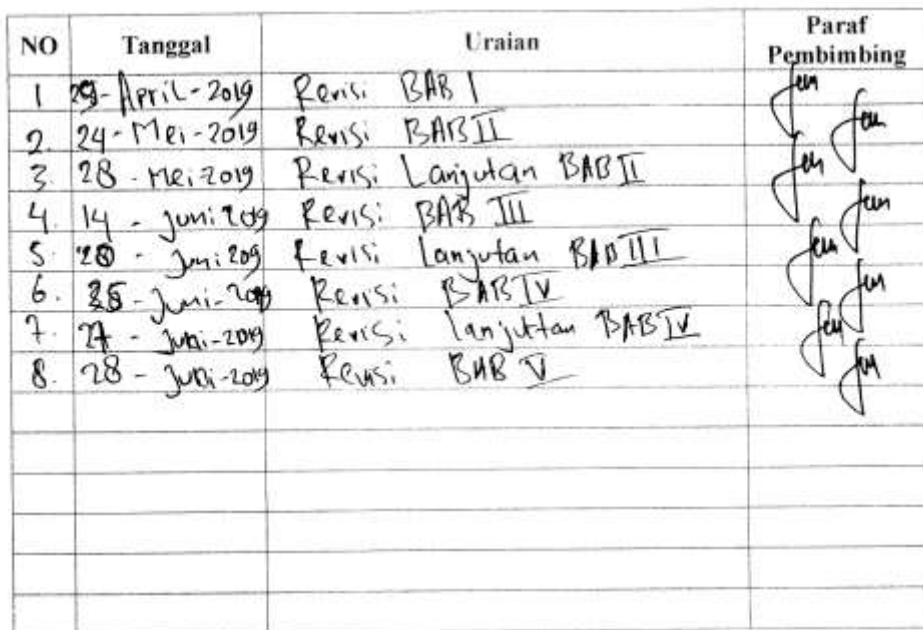 NO Tanggal Uraian Paraf Pembimbing
1 29-April-2019 Revisi BAB I
2. 24-Mei-2019 Revisi BAB II
3. 28-Mei-2019 Revisi Lanjutan BAB II
4. 14-Juni 2019 Revisi BAB III
5. 20-Juni 209 Revisi Lanjutan BAB III
6. 25-Juni-2019 Revisi BAB IV
7. 27-Juni-2019 Revisi lanjuttan BAB IV
8. 28-Juni-2019 Revisi BAB V